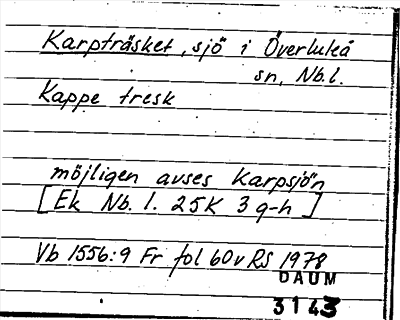 Karpträsket, sjö i Överluleå
sn, Nb.l.
Kappe tresk
möjligen avses Karpsjön
[Ek Nb. l. 25K 3 g-h]
Vb 1556:9 Fr fol 60v RS 1978
DAUM
3143